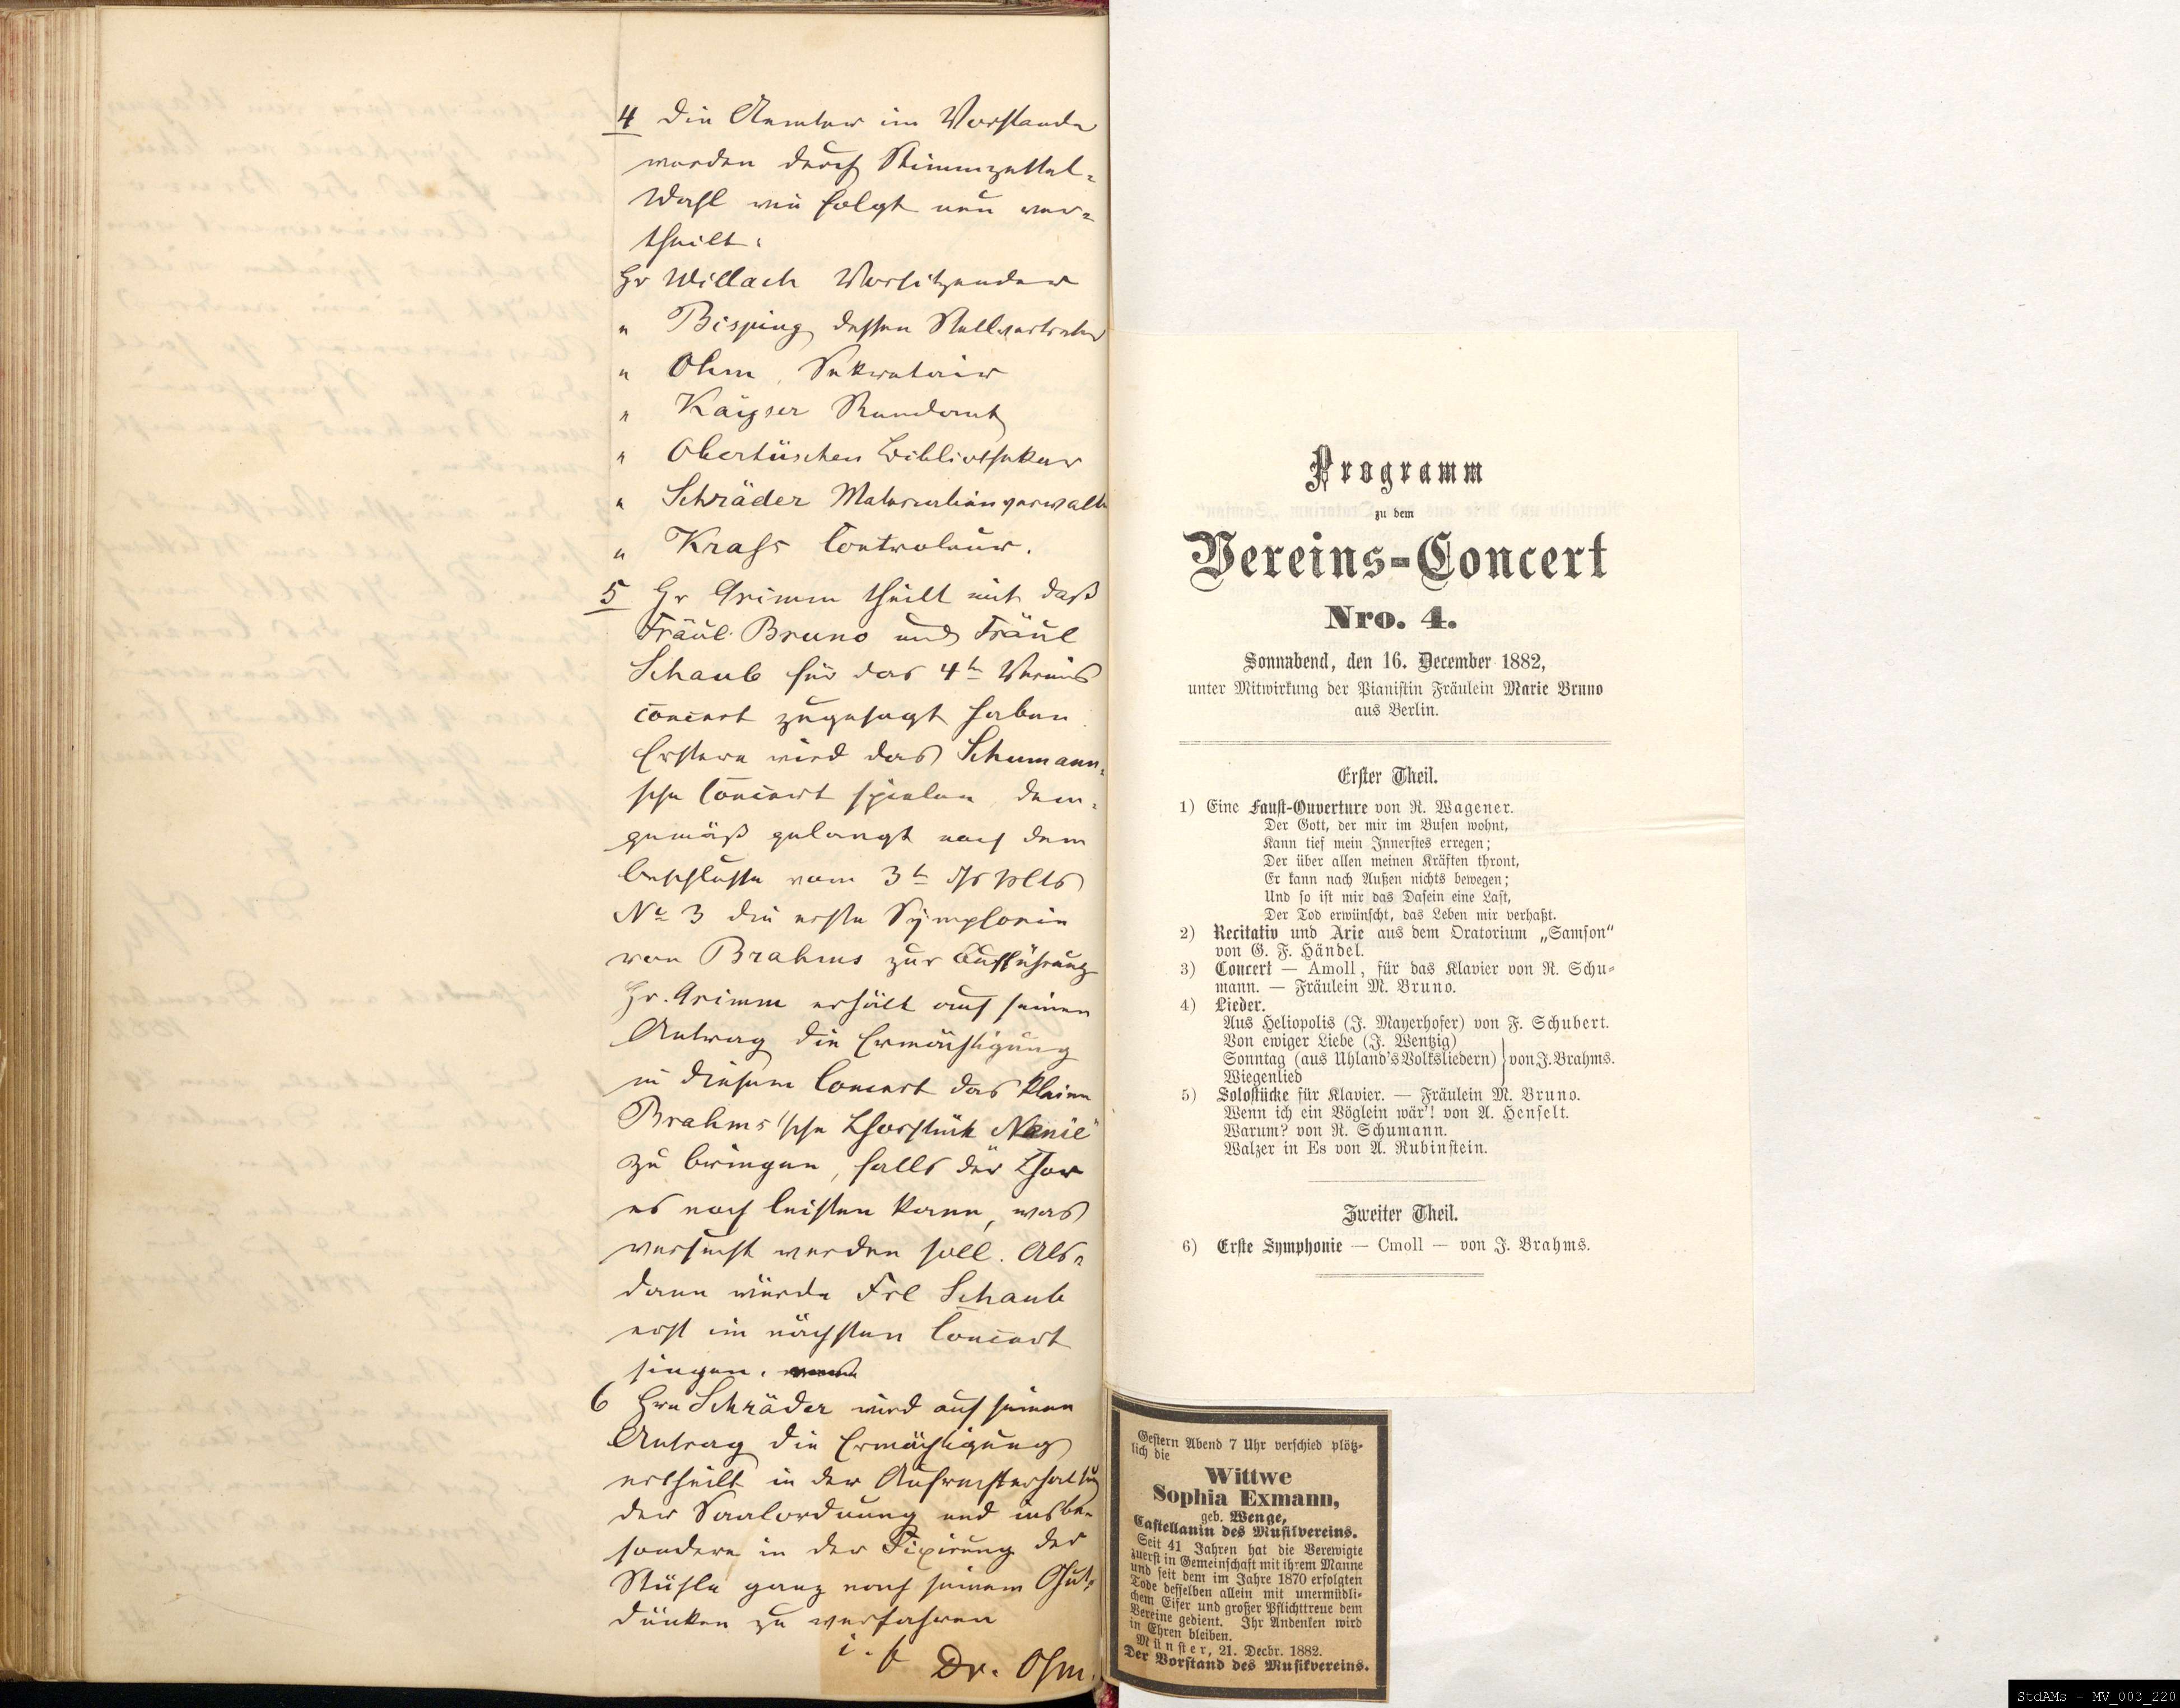 4 Die Aemter im Vorstande
werden durch Stimmzettel-
Wahl wie folgt neu ver-
theilt:
Hr Willach Vorsitzender
" Bisping dessen Stellvertreter
" Ohm, Sekretair
" Kayser Rendant
" Obertüschen Bibliothekar
" Schräder Materialienverwalter
" Krass Controleur.
5 Hr Grimm theilt mit daß
Fräul. Bruno und Fräul
Schaub für das 4te Vereins
concert zugesagt haben.
Erstere wird das Schumann-
sche Concert spielen, dem-
gemäß gelangt nach dem
Beschlusse vom 3t
No 3 die erste Symphonie
von Brahms zur Aufführung
Hr. Grimm erhält auf seinen
Antrag die Ermächtigung
in diesem Concert das kleine
Brahms'sche Chorstück Nänie"
zu bringen, falls der Chor
es noch leisten kann, was
versucht werden soll. Als-
dann würde Frl Schaub
erst im nächsten Concert
singen.
6 Hrn Schräder wird auf seinen
Antrag die Ermächtigung
ertheilt in der Aufrechterhaltung
der Saalordnung und insbe-
sondere in der Fixirung der
Stühle ganz nach seinem Gut-
dünken zu verfahren
i. f.
Dr. Ohm.
Programm
zu dem
Vereins-Concert
Nro. 4.
Sonnabend, den 16. December 1882,
unter Mitwirkung der Pianistin Fräulein Marie Bruno
aus Berlin.
Erster Theil.
1) Eine Faust-Ouverture von R. Wagener.
Der Gott, der mir im Busen wohnt,
Kann tief mein Innerstes erregen;
Der über allen meinen Kräften thront,
Er kann nach Außen nichts bewegen;
Und so ist mir das Dasein eine Last,
Der Tod erwünscht, das Leben mir verhaßt.
2) Recitativ und Arie aus dem Oratorium „Samson"
von G. F. Händel.
3) Concert — Amoll, für das Klavier von R. Schu-
mann. — Fräulein M. Bruno.
4) Lieder.
Aus Heliopolis (J. Mayerhofer) von F. Schubert.
Von ewiger Liebe (J. Wentzig)
Sonntag (aus Uhland's Volksliedern) } von J. Brahms.
Wiegenlied
5) Solostücke für Klavier. — Fräulein M. Bruno.
Wenn ich ein Vöglein wär'! von A. Henselt.
Warum? von R. Schumann.
Walzer in Es von A. Rubinstein.
Zweiter Theil.
6) Erste Symphonie — Cmoll — von J. Brahms.
Gestern Abend 7 Uhr verschied plötz-
lich die
Wittwe
Sophia Exmann,
geb. Wenge,
Castellanin des Musikvereins.
Seit 41 Jahren hat die Verewigte
zuerst in Gemeinschaft mit ihrem Manne
und seit dem im Jahre 1870 erfolgten
Tode desselben allein mit unermüdli-
chem Eifer und großer Pflichttreue dem
Vereine gedient. Ihr Andenken wird
in Ehren bleiben.
Münster, 21. Decbr. 1882.
Der Vorstand des Musikvereins.
StdAMs - MV_003_220